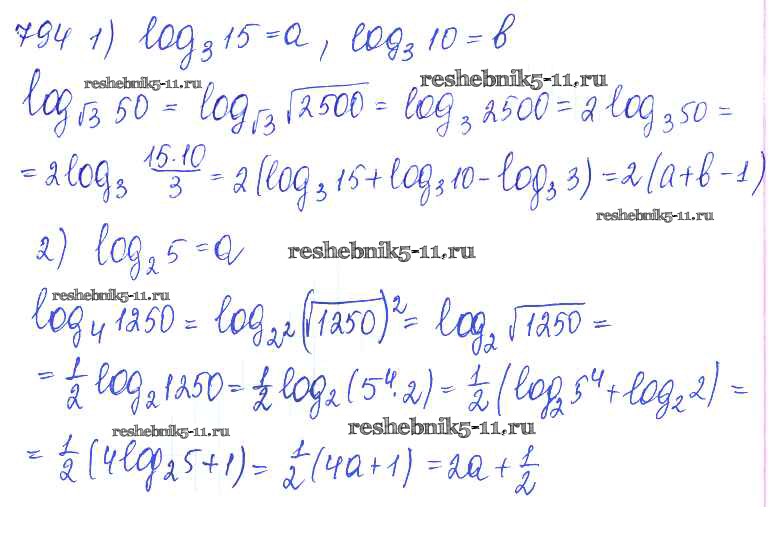 794 1) log₃ 15 = a, log₃ 10 = b
reshebnik5-11.ru reshebnik5-11.ru
log_√3 50 = log_√3 √2500 = log₃ 2500 = 2 log₃ 50 =
= 2 log₃ 15·10/3 = 2(log₃ 15 + log₃ 10 - log₃ 3) = 2(a+b-1)
reshebnik5-11.ru
2) log₂ 5 = a reshebnik5-11.ru
reshebnik5-11.ru
log₄ 1250 = log_2² (√1250)² = log₂ √1250 =
= 1/2 log₂ 1250 = 1/2 log₂ (5⁴·2) = 1/2 (log₂ 5⁴ + log₂ 2) =
reshebnik5-11.ru reshebnik5-11.ru
= 1/2 (4 log₂ 5 + 1) = 1/2 (4a + 1) = 2a + 1/2